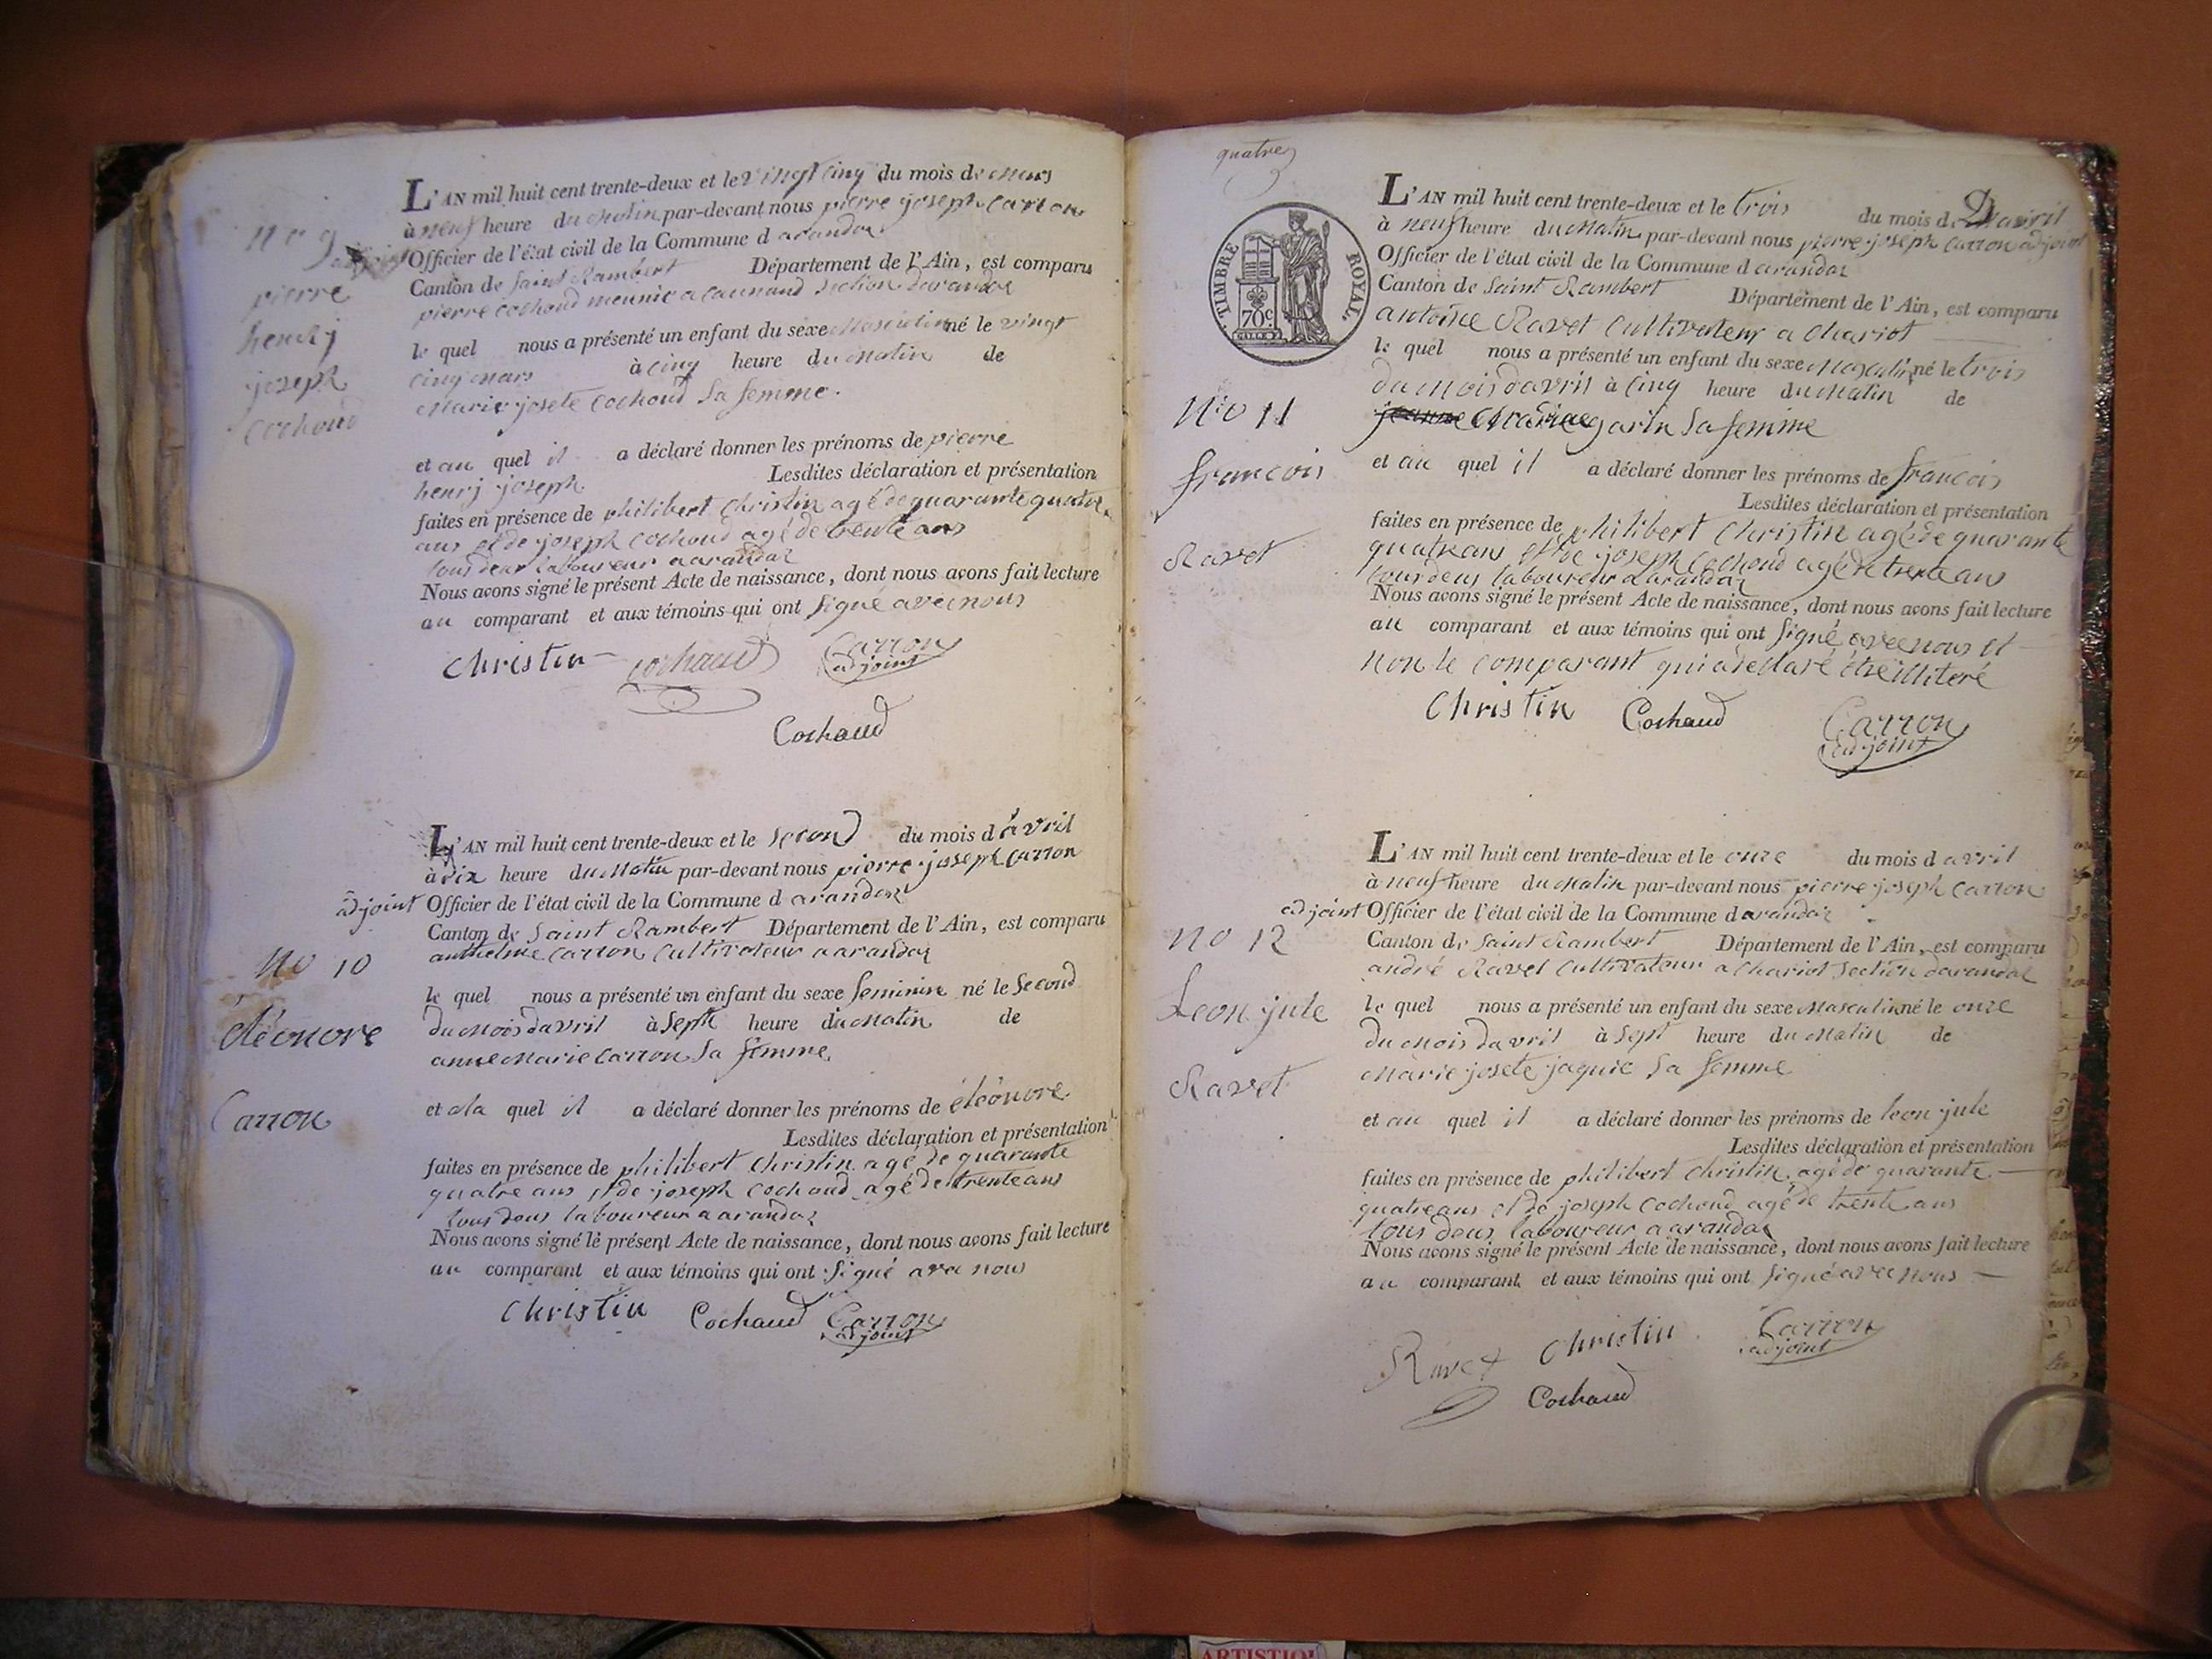 L'AN mil huit cent trente-deux et le vingt cinq du mois de mars
à neuf heure du matin par-devant nous pierre joseph carron
no 9 adjoint Officier de l'état civil de la Commune d arandaz
Canton de saint Rambert Département de l'Ain, est comparu
pierre pierre cochoud meunie a section darandaz
henrij le quel nous a présenté un enfant du sexe masculin né le vingt
joseph cinq mars à cinq heure du matin de
cochoud marie josete cochoud sa femme.
et au quel il a déclaré donner les prénoms de pierre
henrj joseph Lesdites déclaration et présentation
faites en présence de philibert christin agé de quarante quatre
ans et de joseph cochoud agé de trente ans
tous deux laboureur a arandaz
Nous avons signé le présent Acte de naissance, dont nous avons fait lecture
au comparant et aux témoins qui ont signé avec nous
christin cochaud Carron
adjoint
Cochaud
L'AN mil huit cent trente-deux et le second du mois d'avril
à dix heure du matin par-devant nous pierre joseph carron
adjoint Officier de l'état civil de la Commune d arandaz
Canton de saint Rambert Département de l'Ain, est comparu
no 10 anthelme carron cultivateur a arandaz
le quel nous a présenté un enfant du sexe feminin né le second
eléonore du mois davril à sept heure du matin de
anne marie carron sa femme
Carron et a la quel il a déclaré donner les prénoms de éléonore
Lesdites déclaration et présentation
faites en présence de philibert christin agé de quarante
quatre ans et de joseph cochoud agé de trente ans
tous deus laboureur a arandaz
Nous avons signé le présent Acte de naissance, dont nous avons fait lecture
au comparant et aux témoins qui ont signé avec nous
christin Cochaud Carron
adjoint
quatre
TIMBRE ROYAL
70c
L'AN mil huit cent trente-deux et le trois du mois d D avril
à neuf heure du matin par-devant nous pierre joseph carron adjoint
Officier de l'état civil de la Commune d arandaz
Canton de saint Rambert Département de l'Ain, est comparu
antoine Ravet cultivateur a chariot
le quel nous a présenté un enfant du sexe masculin né le trois
du mois davril à cinq heure du matin de
no 11 jeanne marie garin sa femme
francois et au quel il a déclaré donner les prénoms de francois
Lesdites déclaration et présentation
faites en présence de philibert christin agé de quarante
Ravet quatre ans et de joseph cochoud agé de trente ans
tous deus laboureur a arandaz
Nous avons signé le présent Acte de naissance, dont nous avons fait lecture
au comparant et aux témoins qui ont signé avec nous et
non le comparant qui a declaré être illiteré
Christin Cochaud Carron
adjoint
L'AN mil huit cent trente-deux et le onze du mois d avril
à neuf heure du matin par-devant nous pierre joseph carron
adjoint Officier de l'état civil de la Commune d arandaz
no 12 Canton de saint Rambert Département de l'Ain, est comparu
andré Ravet cultivateur a chariot section darandaz
Leon jule le quel nous a présenté un enfant du sexe masculin né le onze
du mois davril à sept heure du matin de
Ravet marie josete jaquie sa femme
et au quel il a déclaré donner les prénoms de leon jule
Lesdites déclaration et présentation
faites en présence de philibert christin agé de quarante
quatre ans et de joseph cochoud agé de trente ans
tous deus laboureur a arandaz
Nous avons signé le présent Acte de naissance, dont nous avons fait lecture
au comparant et aux témoins qui ont signé avec nous
Ravet christin Carron
adjoint
Cochaud